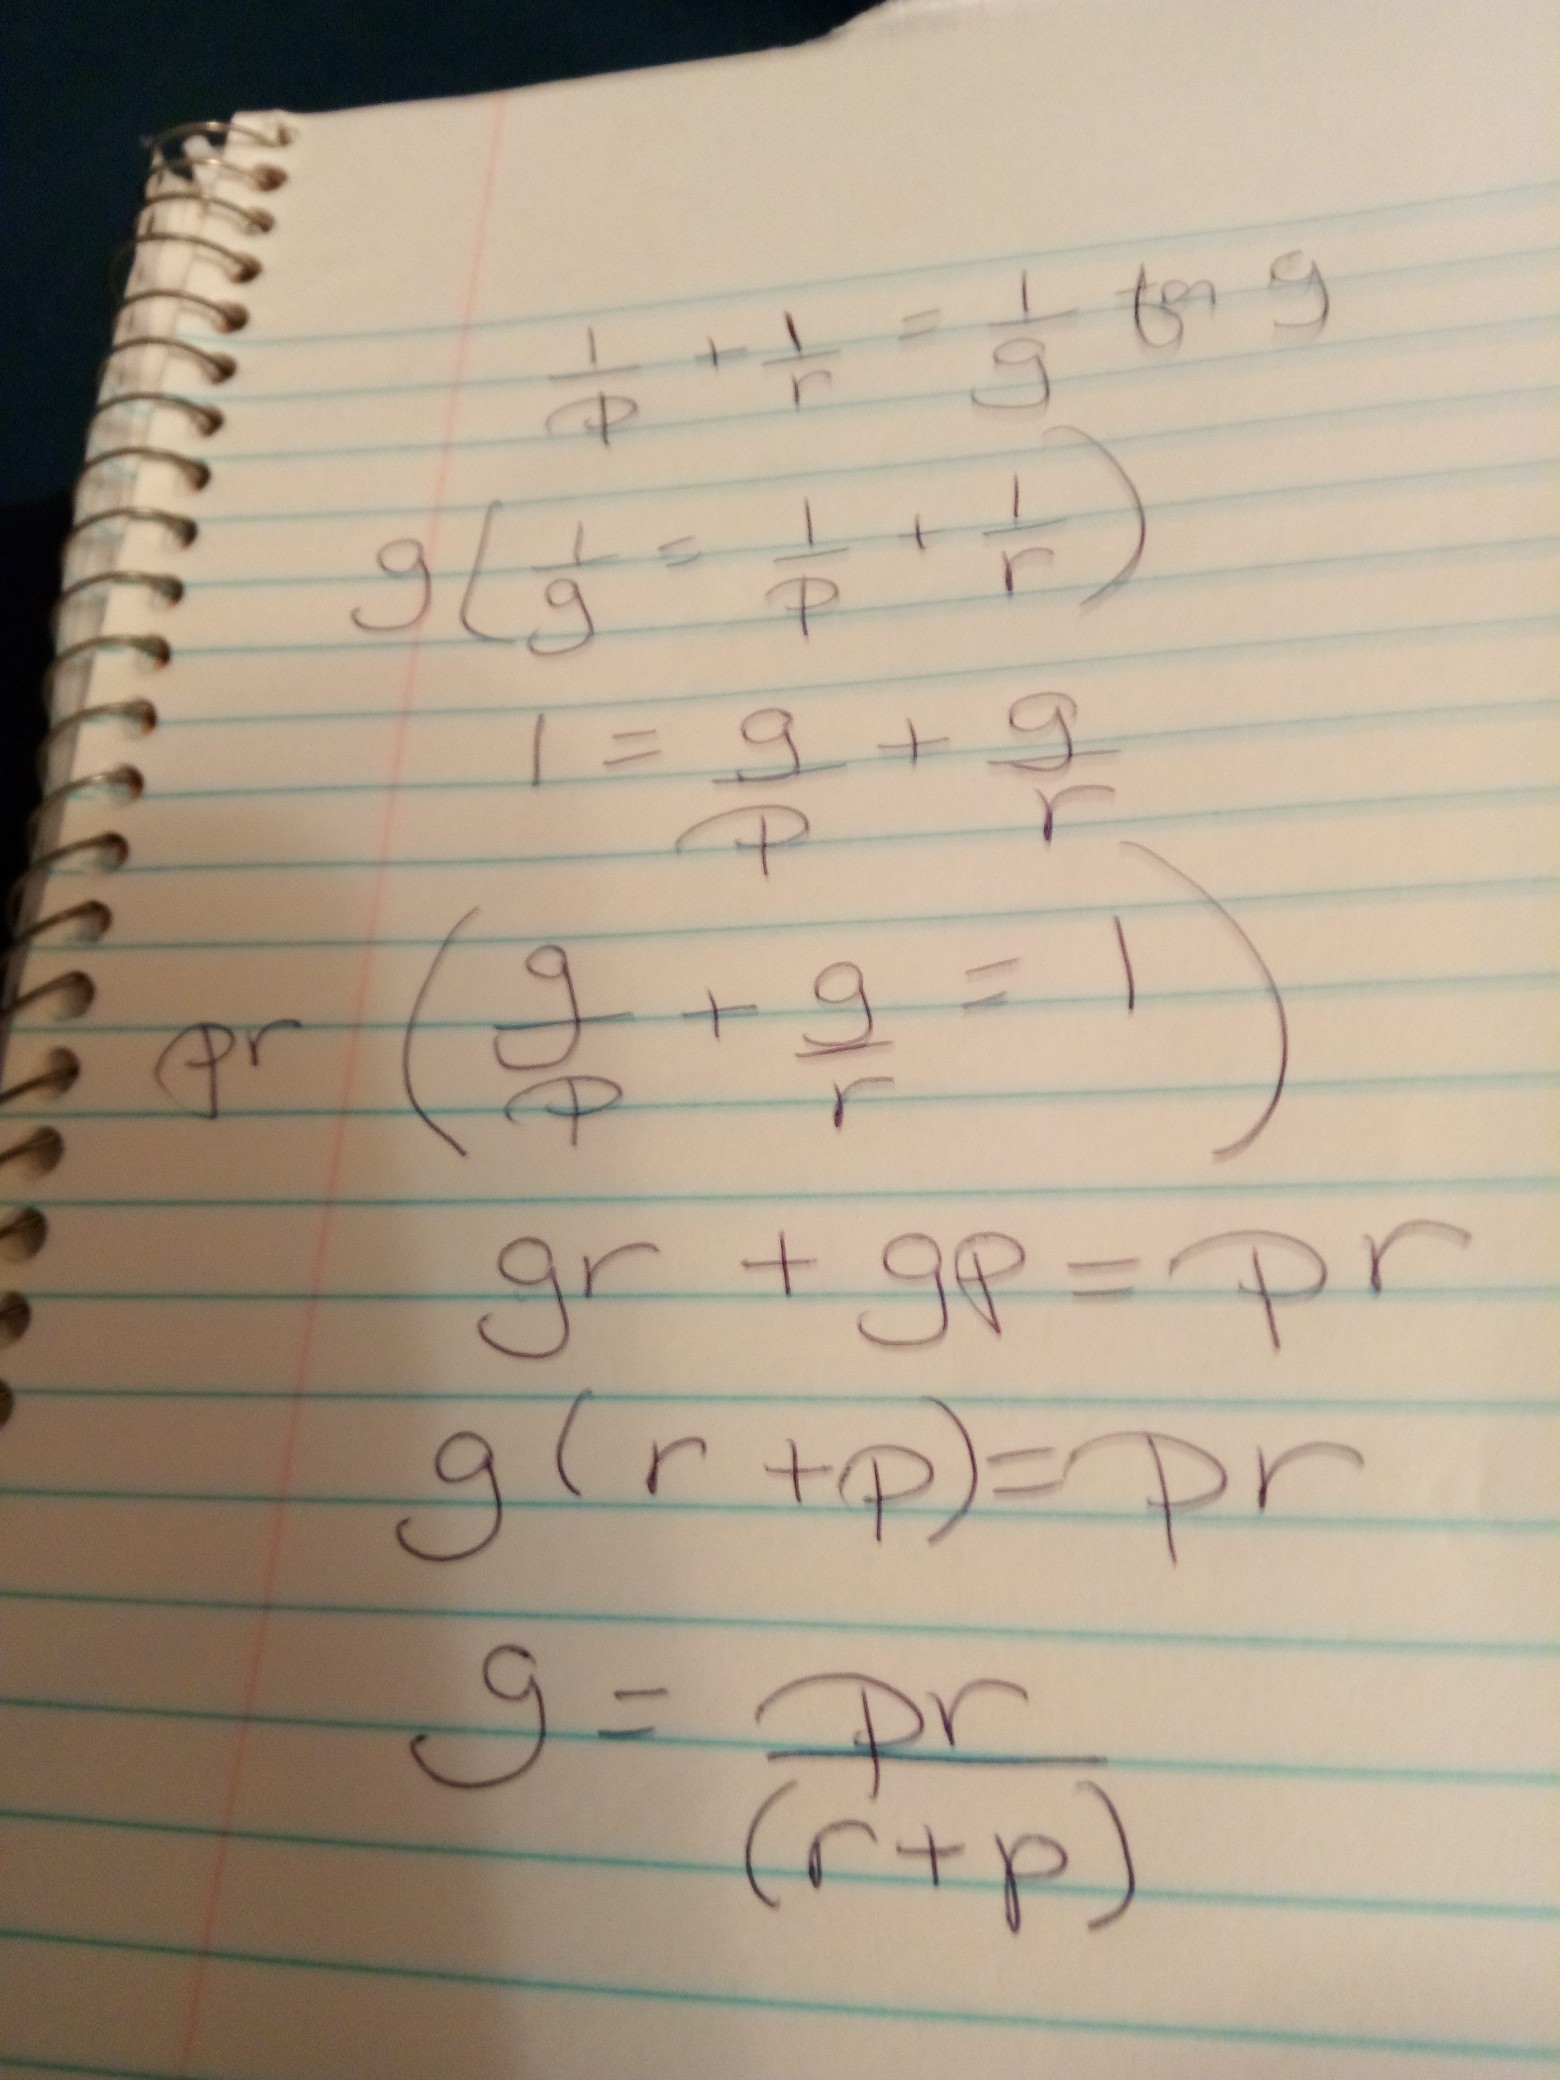 1/p + 1/r = 1/g for g
g(1/g = 1/p + 1/r)
1 = g/p + g/r
pr(g/p + g/r = 1)
gr + gp = pr
g(r+p) = pr
g = pr/(r+p)